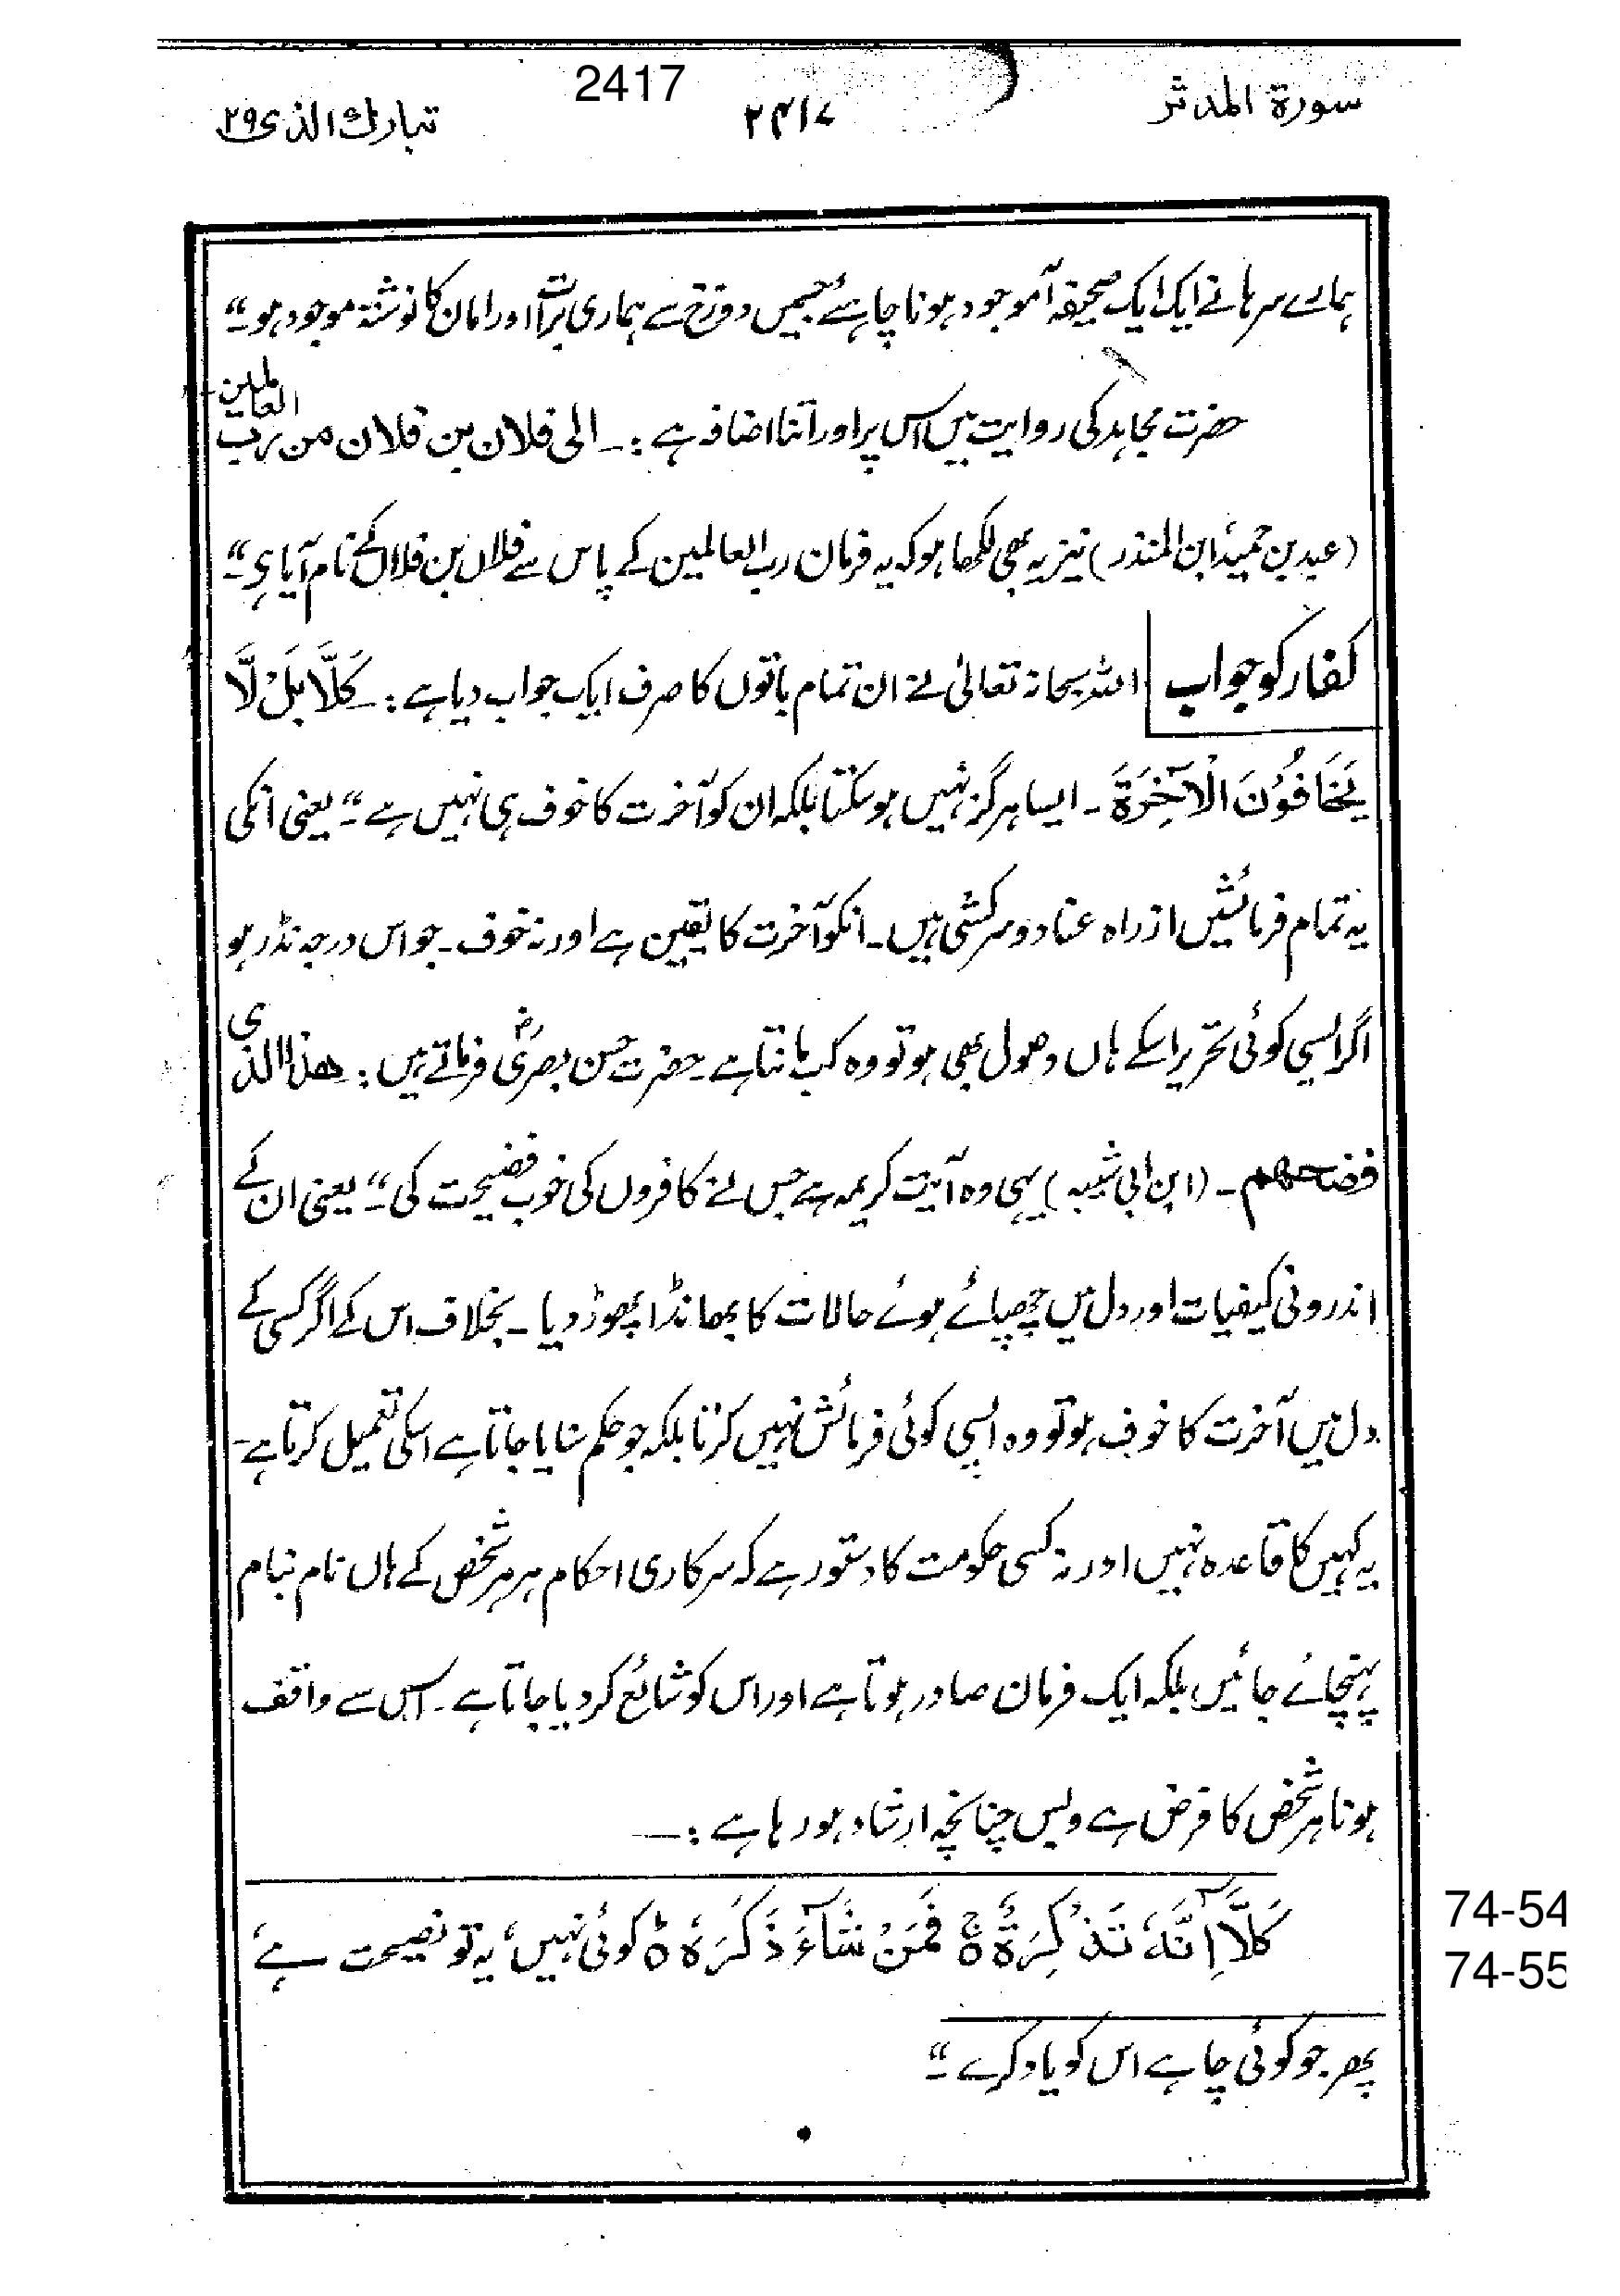 2417
سورة المدثر
۲۴۱۷
تبارك الذی ۲۹
ہمارے سرہانے ایک ایک صحیفہ آموجود ہونا چاہئے جسمیں دوزخ سے ہماری برات اور امان کا نوشتہ موجود ہو۔"
حضرت مجاہد کی روایت میں اس پر اور اتنا اضافہ ہے :۔ الی فلان بن فلان من رب العالمین۔
(عبد بن حمید، ابن المنذر) نیز یہ بھی لکھا ہو کہ یہ فرمان رب العالمین کے پاس سے فلاں بن فلاں کے نام آیا ہے۔"
کفار کو جواب اللہ سبحانہ تعالیٰ نے ان تمام باتوں کا صرف ایک جواب دیا ہے :۔ كَلَّا بَلْ لَّا
يَخَافُوْنَ الْآخِرَةَ ۔ ایسا ہرگز نہیں ہو سکتا بلکہ ان کو آخرت کا خوف ہی نہیں ہے۔" یعنی انکی
یہ تمام فرمائشیں از راہ عناد و سرکشی ہیں۔ انکو آخرت کا یقین ہے اور نہ خوف۔ جو اس درجہ نڈر ہو
اگر ایسی کوئی تحریر اسکے ہاں وصول بھی ہو تو وہ کب مانتا ہے۔ حضرت حسن بصریؒ فرماتے ہیں :۔ ھذا الذی
فضحهم ۔ (ابن ابی شیبہ) یہی وہ آیت کریمہ ہے جس نے کافروں کی خوب فضیحت کی۔" یعنی ان کے
اندرونی کیفیات اور دل میں چھپائے ہوئے حالات کا بھانڈا پھوڑ دیا۔ بخلاف اس کے اگر کسی کے
دل میں آخرت کا خوف ہو تو وہ ایسی کوئی فرمائش نہیں کرتا بلکہ جو حکم سنایا جاتا ہے اسکی تعمیل کرتا ہے۔
یہ کہیں کا قاعدہ نہیں اور نہ کسی حکومت کا دستور ہے کہ سرکاری احکام ہر ہر شخص کے ہاں نام بنام
پہنچائے جائیں بلکہ ایک فرمان صادر ہوتا ہے اور اس کو شائع کر دیا جاتا ہے۔ اس سے واقف
ہونا ہر شخص کا فرض ہے وبس چنانچہ ارشاد ہو رہا ہے :۔
كَلَّآ اِنَّهٗ تَذْكِرَةٌ ۚ فَمَنْ شَآءَ ذَكَرَهٗ ۗ کوئی نہیں، یہ تو نصیحت ہے،
74-54
74-55
پھر جو کوئی چاہے اس کو یاد کرے۔"